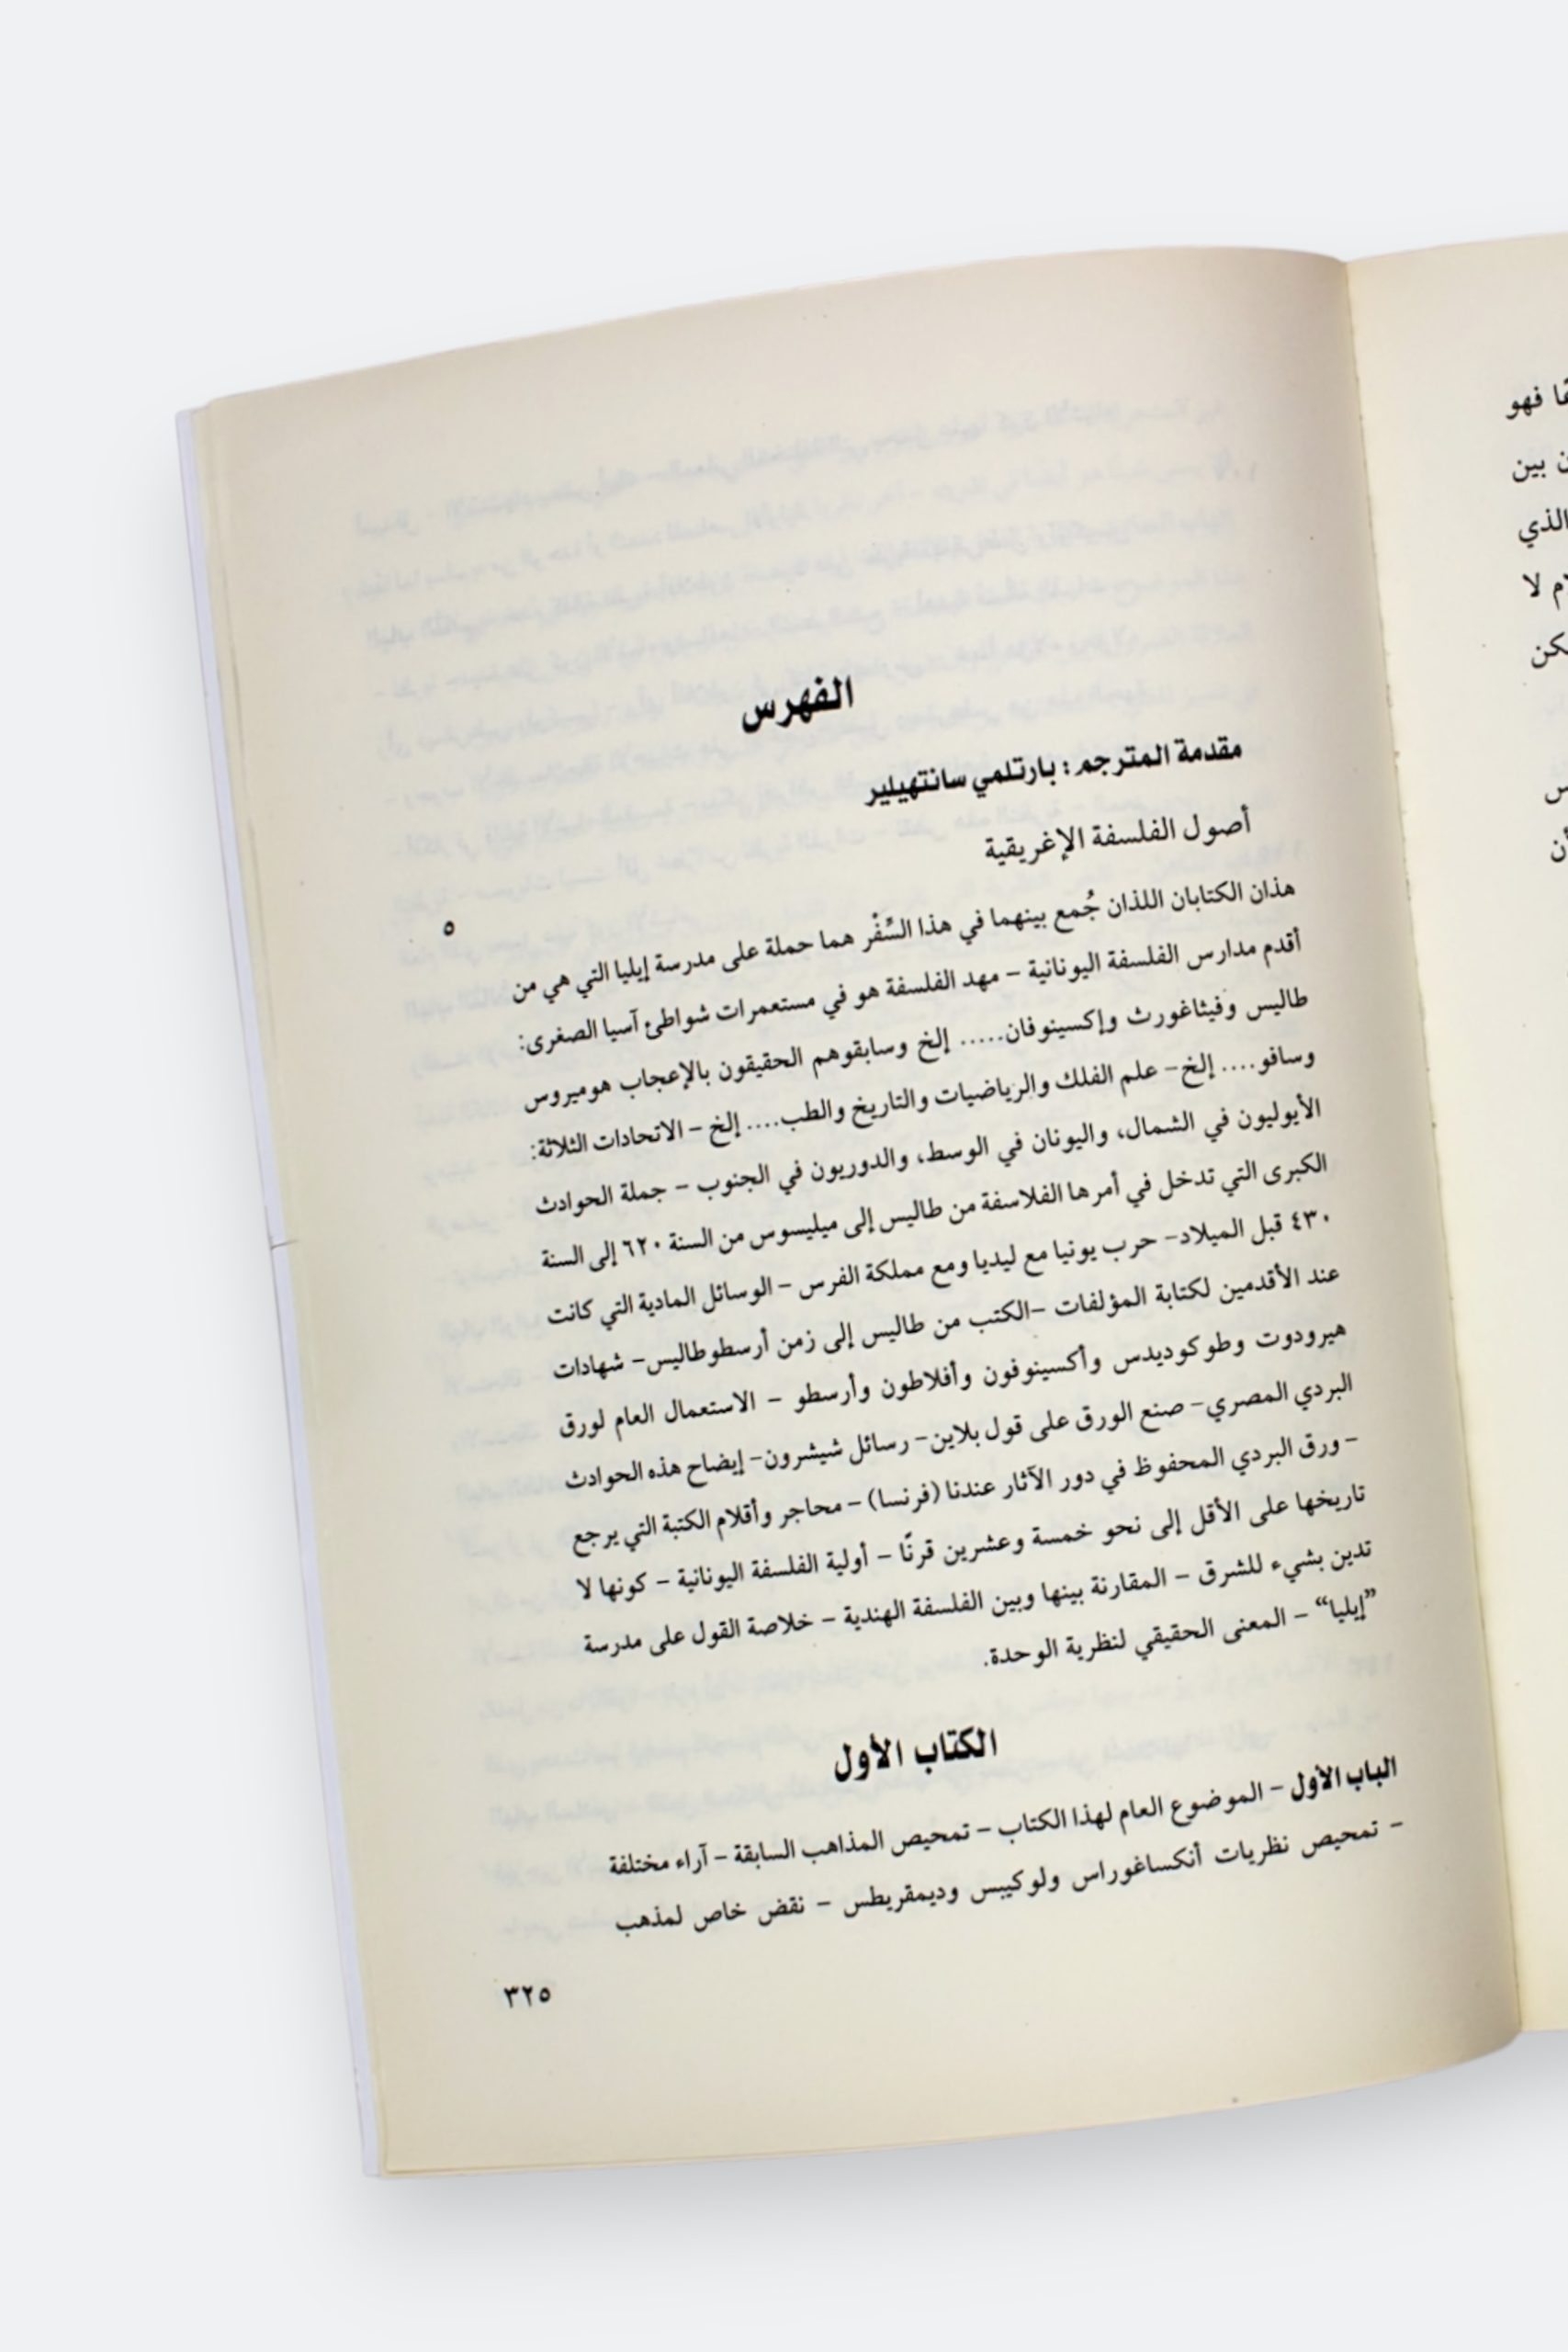 الفهرس
مقدمة المترجم: بارتلمي سانتهيلير
أصول الفلسفة الإغريقية
٥
هذان الكتابان اللذان جُمع بينهما في هذا السِّفْر هما حملة على مدرسة إيليا التي هي من
أقدم مدارس الفلسفة اليونانية – مهد الفلسفة هو في مستعمرات شواطئ آسيا الصغرى:
طاليس وفيثاغورث وإكسينوفان..... إلخ وسابقوهم الحقيقون بالإعجاب هوميروس
وسافو.... إلخ– علم الفلك والرياضيات والتاريخ والطب.... إلخ – الاتحادات الثلاثة:
الأيوليون في الشمال، واليونان في الوسط، والدوريون في الجنوب – جملة الحوادث
الكبرى التي تدخل في أمرها الفلاسفة من طاليس إلى ميليسوس من السنة ٦٢٠ إلى السنة
٤٣٠ قبل الميلاد– حرب يونيا مع ليديا ومع مملكة الفرس – الوسائل المادية التي كانت
عند الأقدمين لكتابة المؤلفات –الكتب من طاليس إلى زمن أرسطوطاليس– شهادات
هيرودوت وطوكوديدس وأكسينوفون وأفلاطون وأرسطو – الاستعمال العام لورق
البردي المصري– صنع الورق على قول بلاين– رسائل شيشرون– إيضاح هذه الحوادث
– ورق البردي المحفوظ في دور الآثار عندنا (فرنسا) – محاجر وأقلام الكتبة التي يرجع
تاريخها على الأقل إلى نحو خمسة وعشرين قرنًا – أولية الفلسفة اليونانية – كونها لا
تدين بشيء للشرق – المقارنة بينها وبين الفلسفة الهندية – خلاصة القول على مدرسة
”إيليا“ – المعنى الحقيقي لنظرية الوحدة.
الكتاب الأول
الباب الأول – الموضوع العام لهذا الكتاب – تمحيص المذاهب السابقة – آراء مختلفة
– تمحيص نظريات أنكساغوراس ولوكيبس وديمقريطس – نقض خاص لمذهب
٣٢٥
فهو
بين
الذي
لا